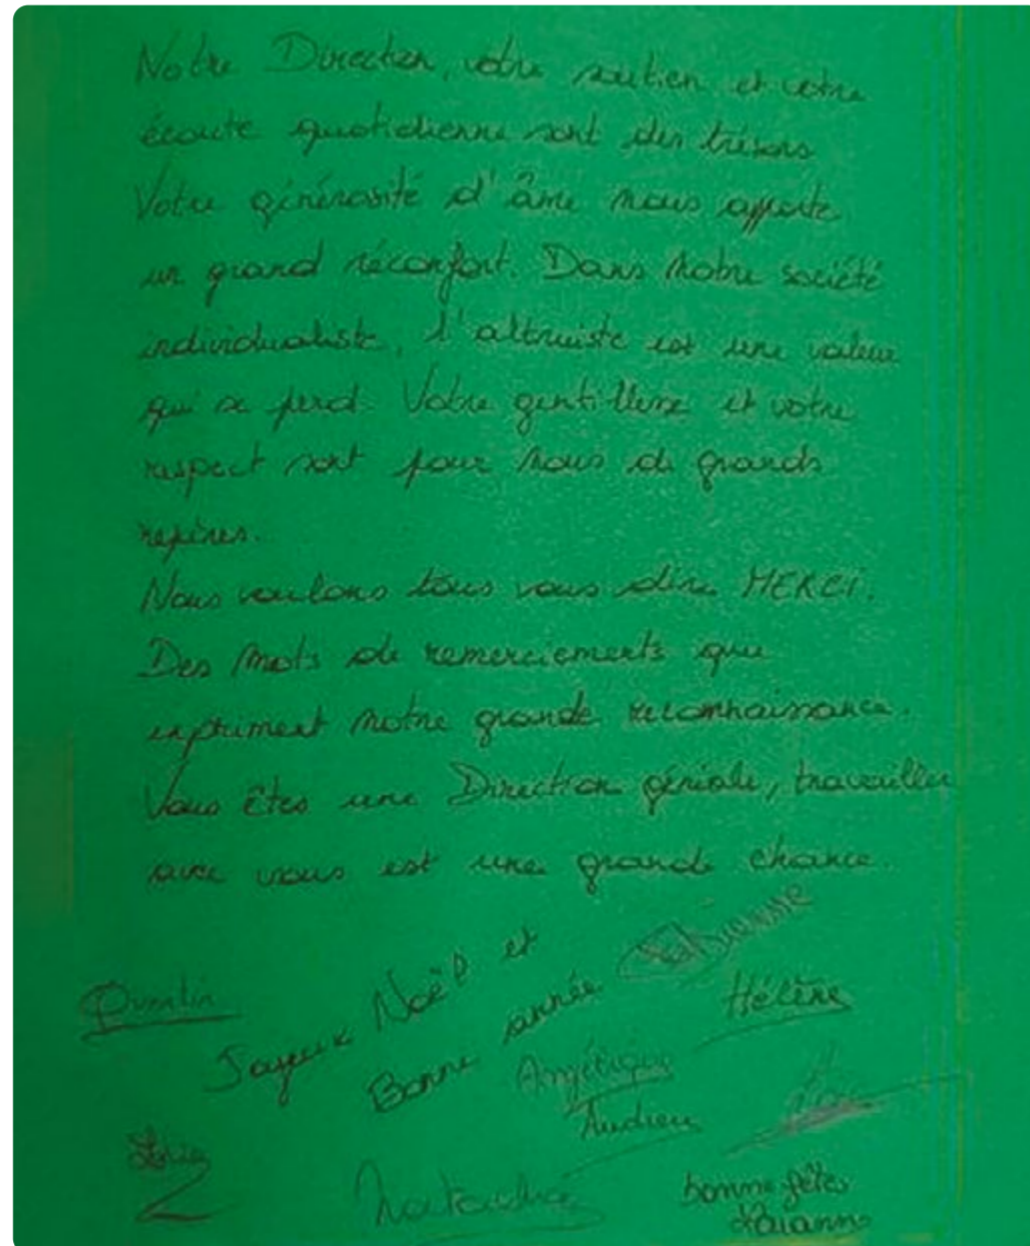 Notre Direction, votre soutien et votre
écoute quotidienne sont des trésors
Votre générosité d'âme nous apporte
un grand réconfort. Dans notre société
individualiste, l'altruiste est une valeur
qui se perd. Votre gentillesse et votre
respect sont pour nous de grands
repères.
Nous voulons tous vous dire MERCI.
Des mots de remerciements qui
expriment notre grande reconnaissance.
Vous êtes une Direction géniale, travailler
avec vous est une grande chance.
Joyeux Noël et
Bonne année
Quentin
Hélène
Angélique
Audrey
Natacha
bonne fêtes